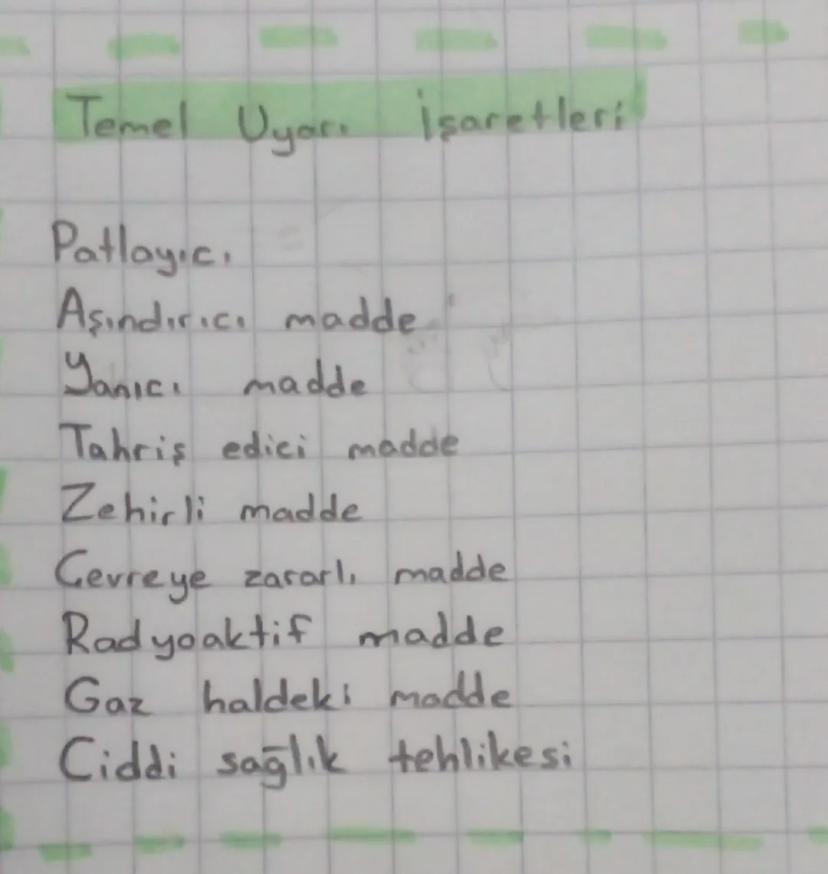 Temel Uyarı İşaretleri
Patlayıcı
Aşındırıcı madde
Yanıcı madde
Tahriş edici madde
Zehirli madde
Çevreye zararlı madde
Radyoaktif madde
Gaz haldeki madde
Ciddi sağlık tehlikesi